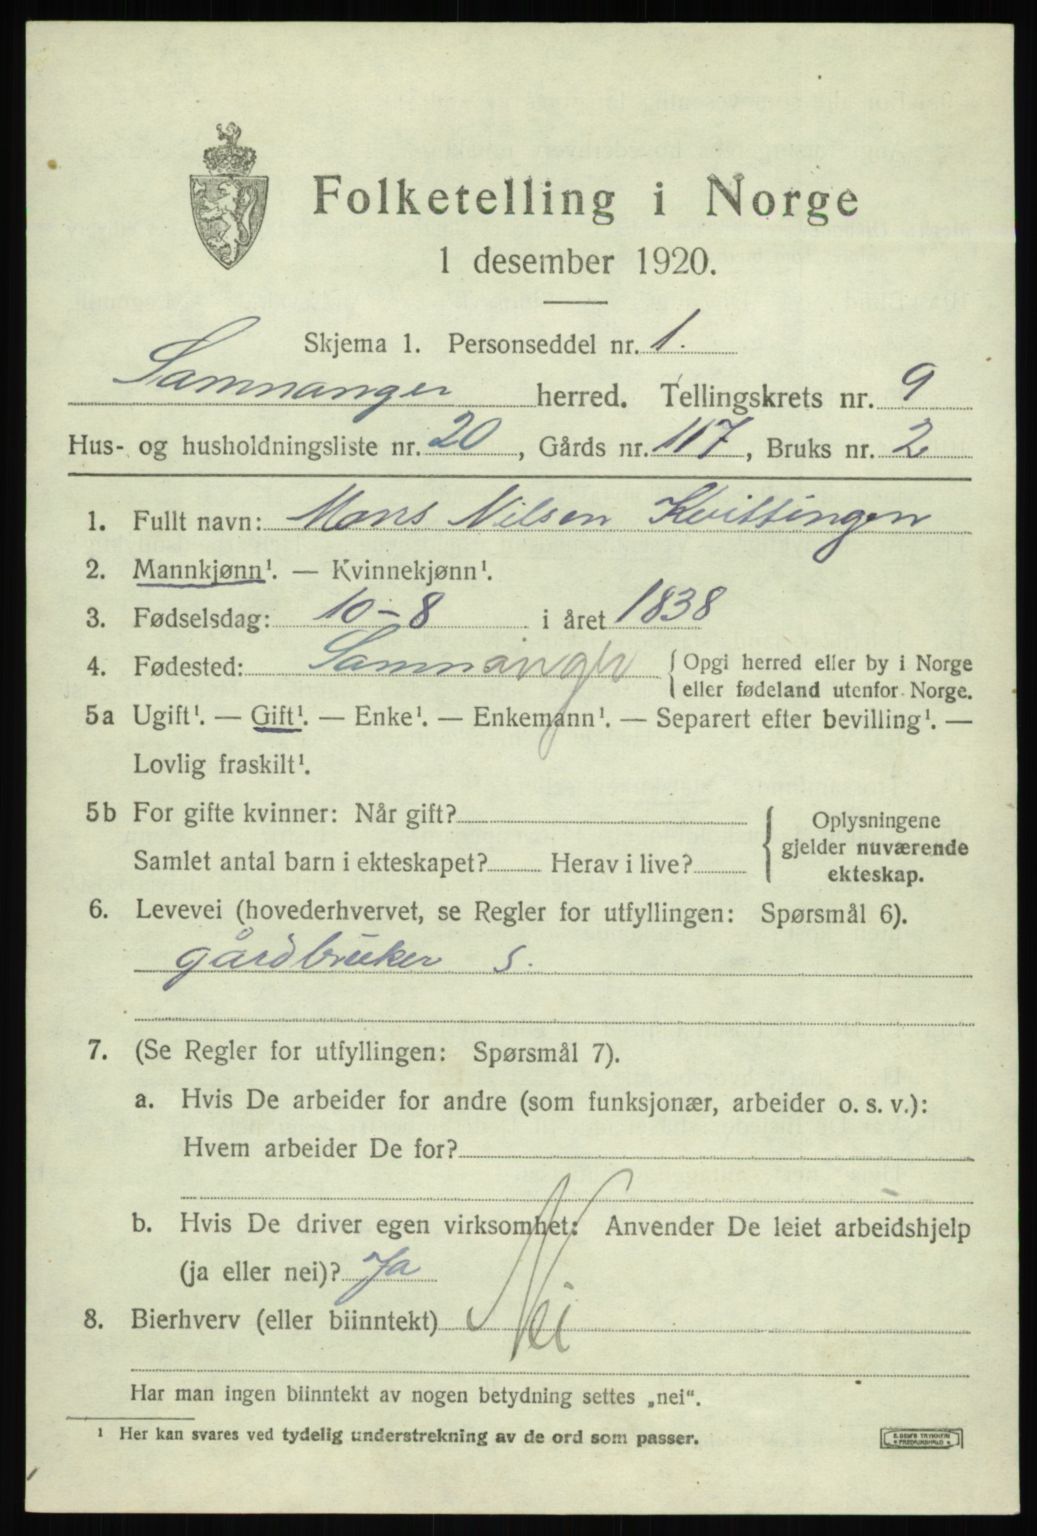 Folketelling i Norge
1 desember 1920.
Skjema 1. Personseddel nr. 1.
Samnanger herred. Tellingskrets nr. 9
Hus- og husholdningsliste nr. 20, Gårds nr. 117, Bruks nr. 2
1. Fullt navn: Mons Nilsen Kvittingen
2. Mannkjønn¹. — Kvinnekjønn¹.
3. Fødselsdag: 10-8 i året 1838
4. Fødested: Samnanger { Opgi herred eller by i Norge
eller fødeland utenfor Norge.
5a Ugift¹. — Gift¹. — Enke¹. — Enkemann¹. — Separert efter bevilling¹. —
Lovlig fraskilt¹.
5b For gifte kvinner: Når gift?
Samlet antal barn i ekteskapet? Herav i live?
{ Oplysningene
gjelder nuværende
ekteskap.
6. Levevei (hovederhvervet, se Regler for utfyllingen: Spørsmål 6).
gårdbruker s.
7. (Se Regler for utfyllingen: Spørsmål 7).
a. Hvis De arbeider for andre (som funksjonær, arbeider o. s. v.):
Hvem arbeider De for?
b. Hvis De driver egen virksomhet: Anvender De leiet arbeidshjelp
(ja eller nei)? Ja
8. Bierhverv (eller biinntekt) Nei
Har man ingen biinntekt av nogen betydning settes „nei“.
¹ Her kan svares ved tydelig understrekning av de ord som passer.